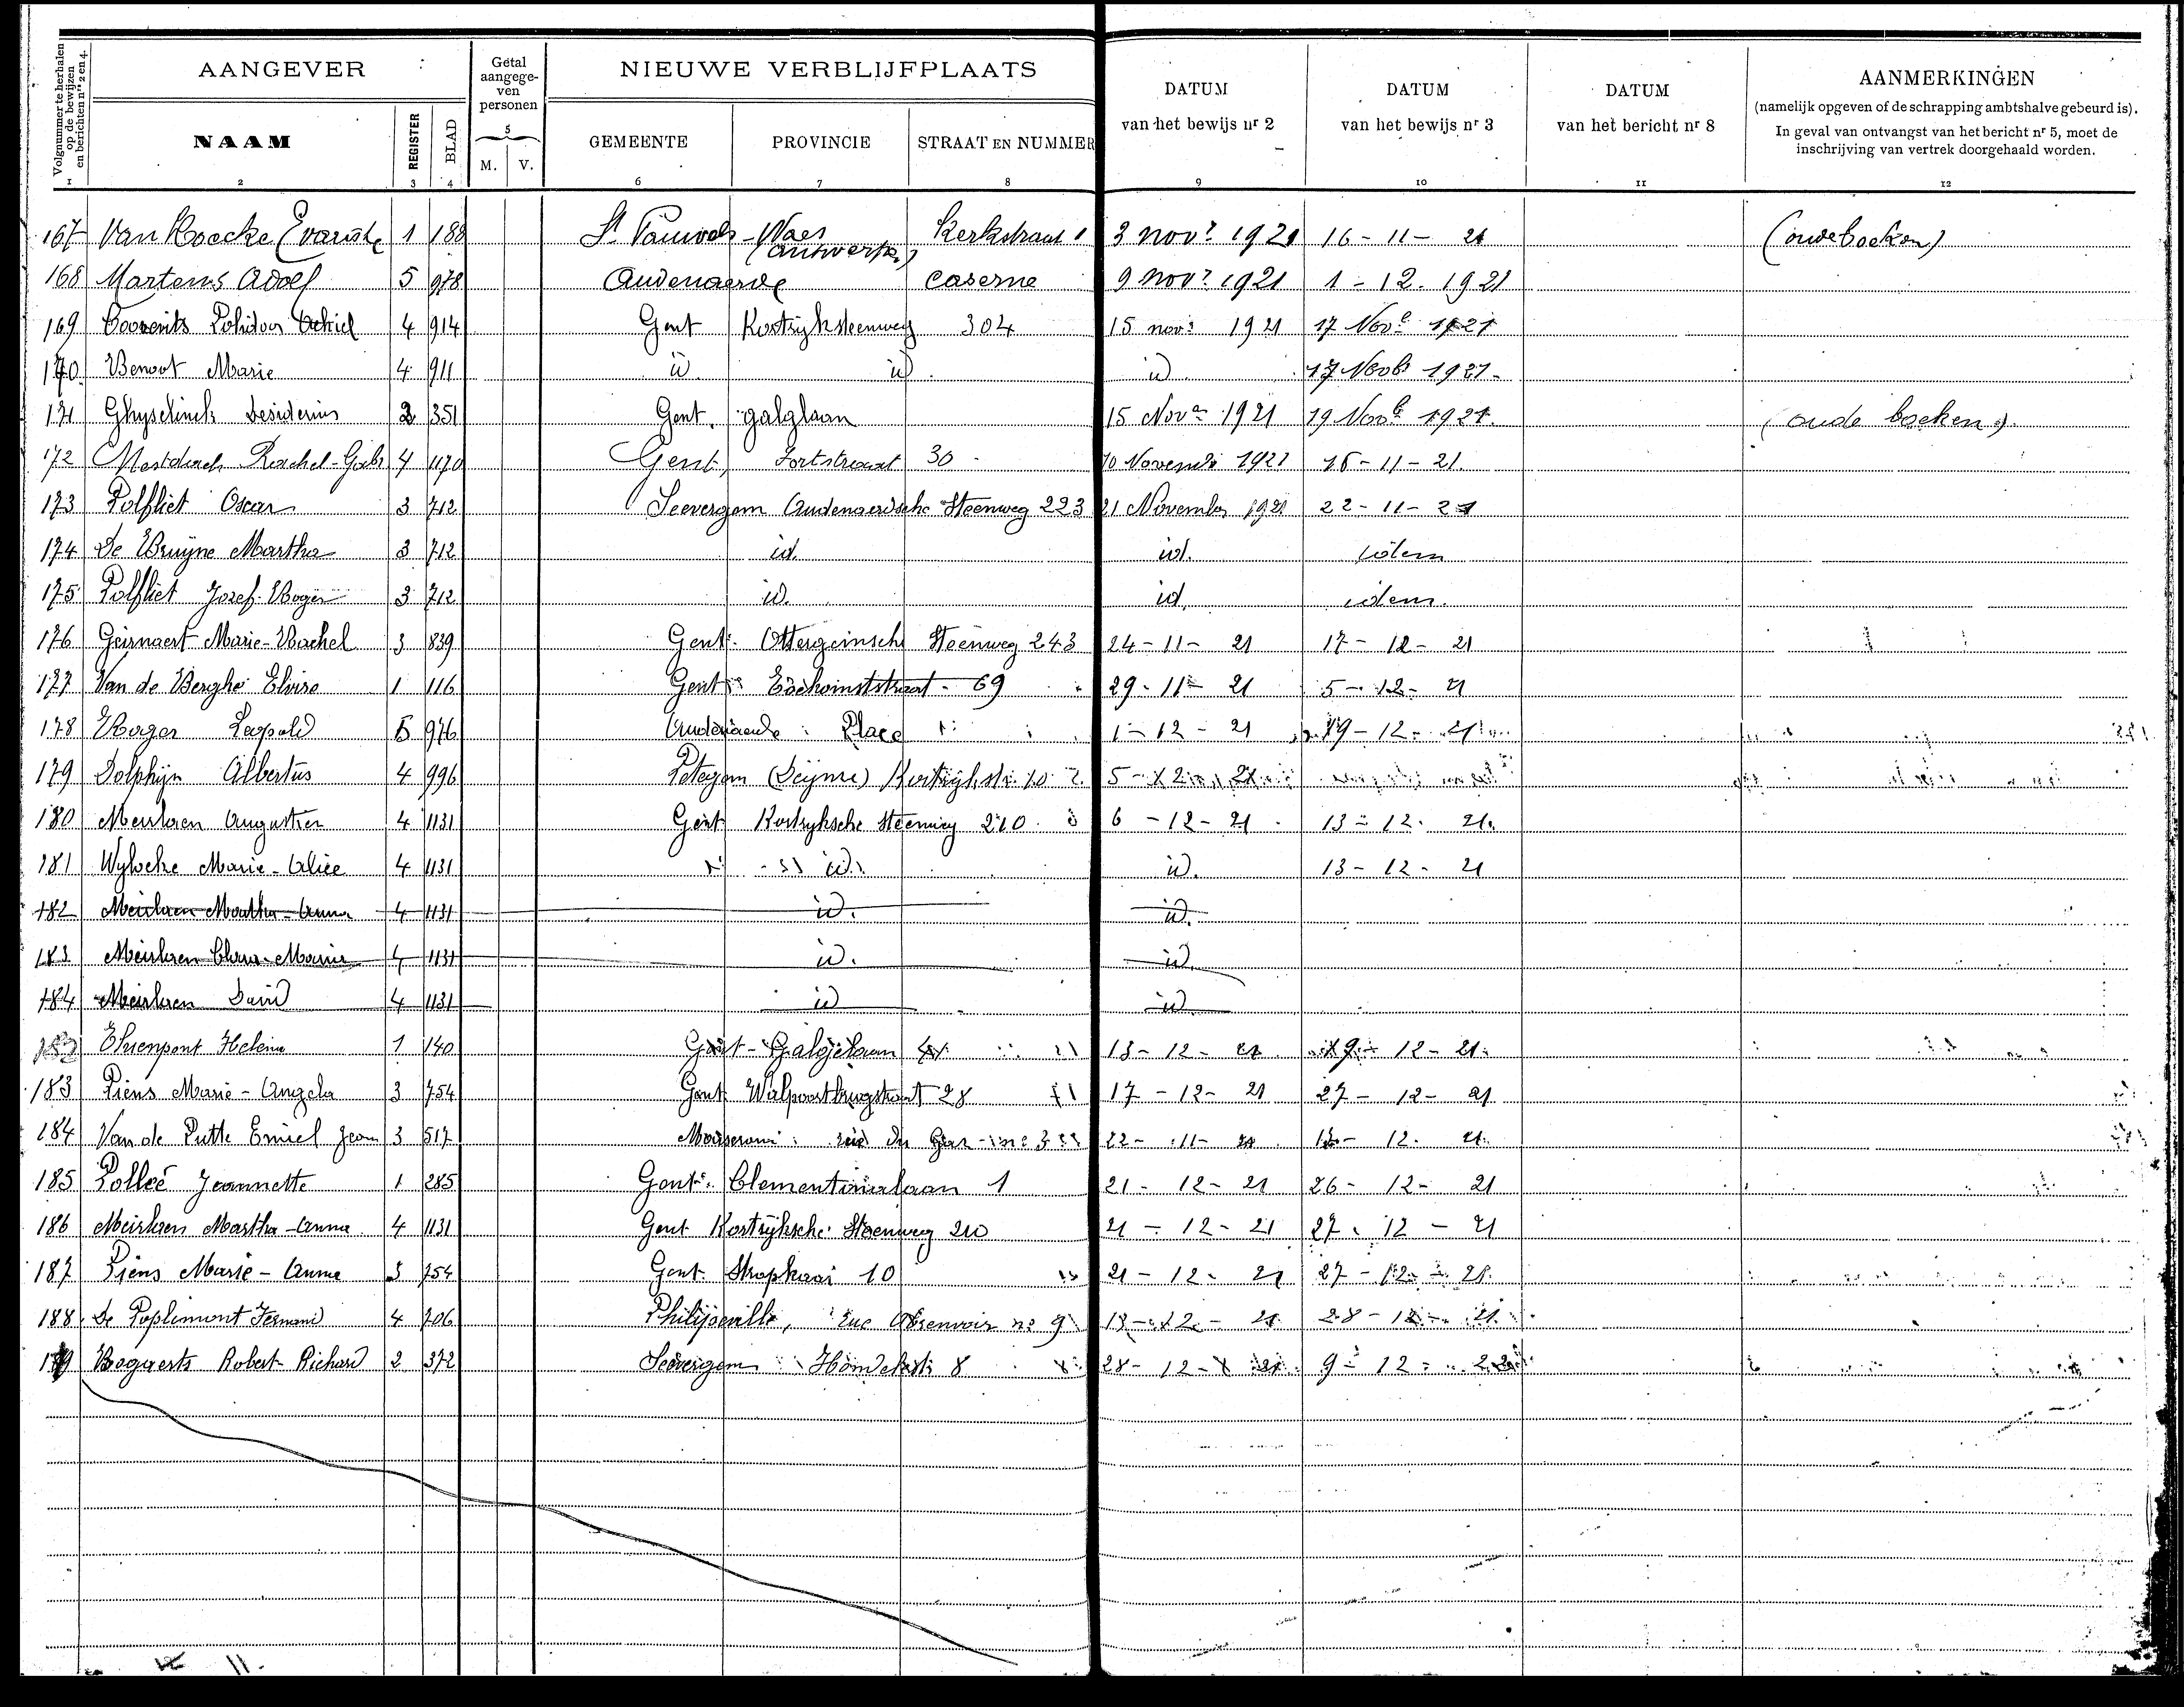 Volgnummer te herhalen op de bewijzen en berichten nrs 2 en 4.
AANGEVER
Getal aangegeven personen
NIEUWE VERBLIJFPLAATS
DATUM van het bewijs nr 2
DATUM van het bewijs nr 3
DATUM van het bericht nr 8
AANMERKINGEN
(namelijk opgeven of de schrapping ambtshalve gebeurd is).
In geval van ontvangst van het bericht nr 5, moet de
inschrijving van vertrek doorgehaald worden.
NAAM REGISTER BLAD 5 M. V. GEMEENTE PROVINCIE STRAAT EN NUMMER
1 2 3 4 6 7 8 9 10 11 12
167 Van Hoecke Evariste 1 188 St Pauwels - Waes (Antwerpen) Kerkstraat 1 3 novr 1921 16 - 11 - 21 (oude boeken)
168 Martens Adolf 5 978 Audenaerde caserne 9 novr 1921 1 - 12 . 1921
169 Polidoor Achiel 4 914 Gent Kortrijksteenweg 304 15 novr 1921 17 Nove 1921
170. Benoot Marie 4 911 id id. id 17 Novb 1921.
171 Ghyselinck Desiderius 2 351 Gent. galglaan 15 Nover 1921 19 Novb 1921. (oude boeken).
172 Mestdach Rachel-Gabr 4 1170 Gent, Fortstraat 30 10 Novemb 1921 16 - 11 - 21.
173 Polfliet Oscar 3 712 Seevergem Audenaerdsche Steenweg 223 21 November 1921 22 - 11 - 21
174 De Bruyne Martha 3 712 id. id. idem
175 Polfliet Jozef-Roger 3 712 id. id. idem.
176 Geirnaert Marie-Rachel 3 839 Gent Ottergemsche Steenweg 243 24 - 11 - 21 17 - 12 - 21
177 Van de Berghe Elvire 1 116 Gent 69 29 - 11 - 21 5 - 12 - 21
178 Roger Leopold 5 976 Audenaerde Place 1 - 12 - 21 19 - 12 - 21
179 Dolphijn Albertus 4 996 Petegem (Deynze) Kortrijkstr. 5 - 12 - 21
180 Meirlaen Augustien 4 1131 Gent Kortryksche Steenweg 210 6 - 12 - 21 13 - 12 - 21.
181 Wylocke Marie-Alice 4 1131 id. id. 13 - 12 - 21
182 Meirlaen Martha-Anna 4 1131 id. id.
183 Meirlaen Clara-Maria 4 1131 id. id.
184 Meirlaen David 4 1131 id id
182 Thienpont Helena 1 140 Gent - Galgelaan 13 - 12 - 21 19 - 12 - 21
183 Piens Marie-Angela 3 754 Gent Walpoortbrugstraat 28 17 - 12 - 21 27 - 12 - 21
184 Van de Putte Emiel Jean 3 517 22 - 11 - 21 12 - 21
185 Polleé Jeannette 1 285 Gent Clementinalaan 1 21 - 12 - 21 26 - 12 - 21
186 Meirlaen Martha-Anna 4 1131 Gent Kortrijksche Steenweg 210 21 - 12 - 21 27 . 12 - 21
187 Piens Marie-Anna 3 754 Gent Stropkaai 10 21 - 12 - 21 27 - 12 - 21
188. De Poplimont Fernand 4 706 Philippeville, rue no 9 12 - 21 28 - 12 - 21
189 Bogaerts Robert-Richard 2 372 Seevergem 8 28 - 12 - 21 9 - 12